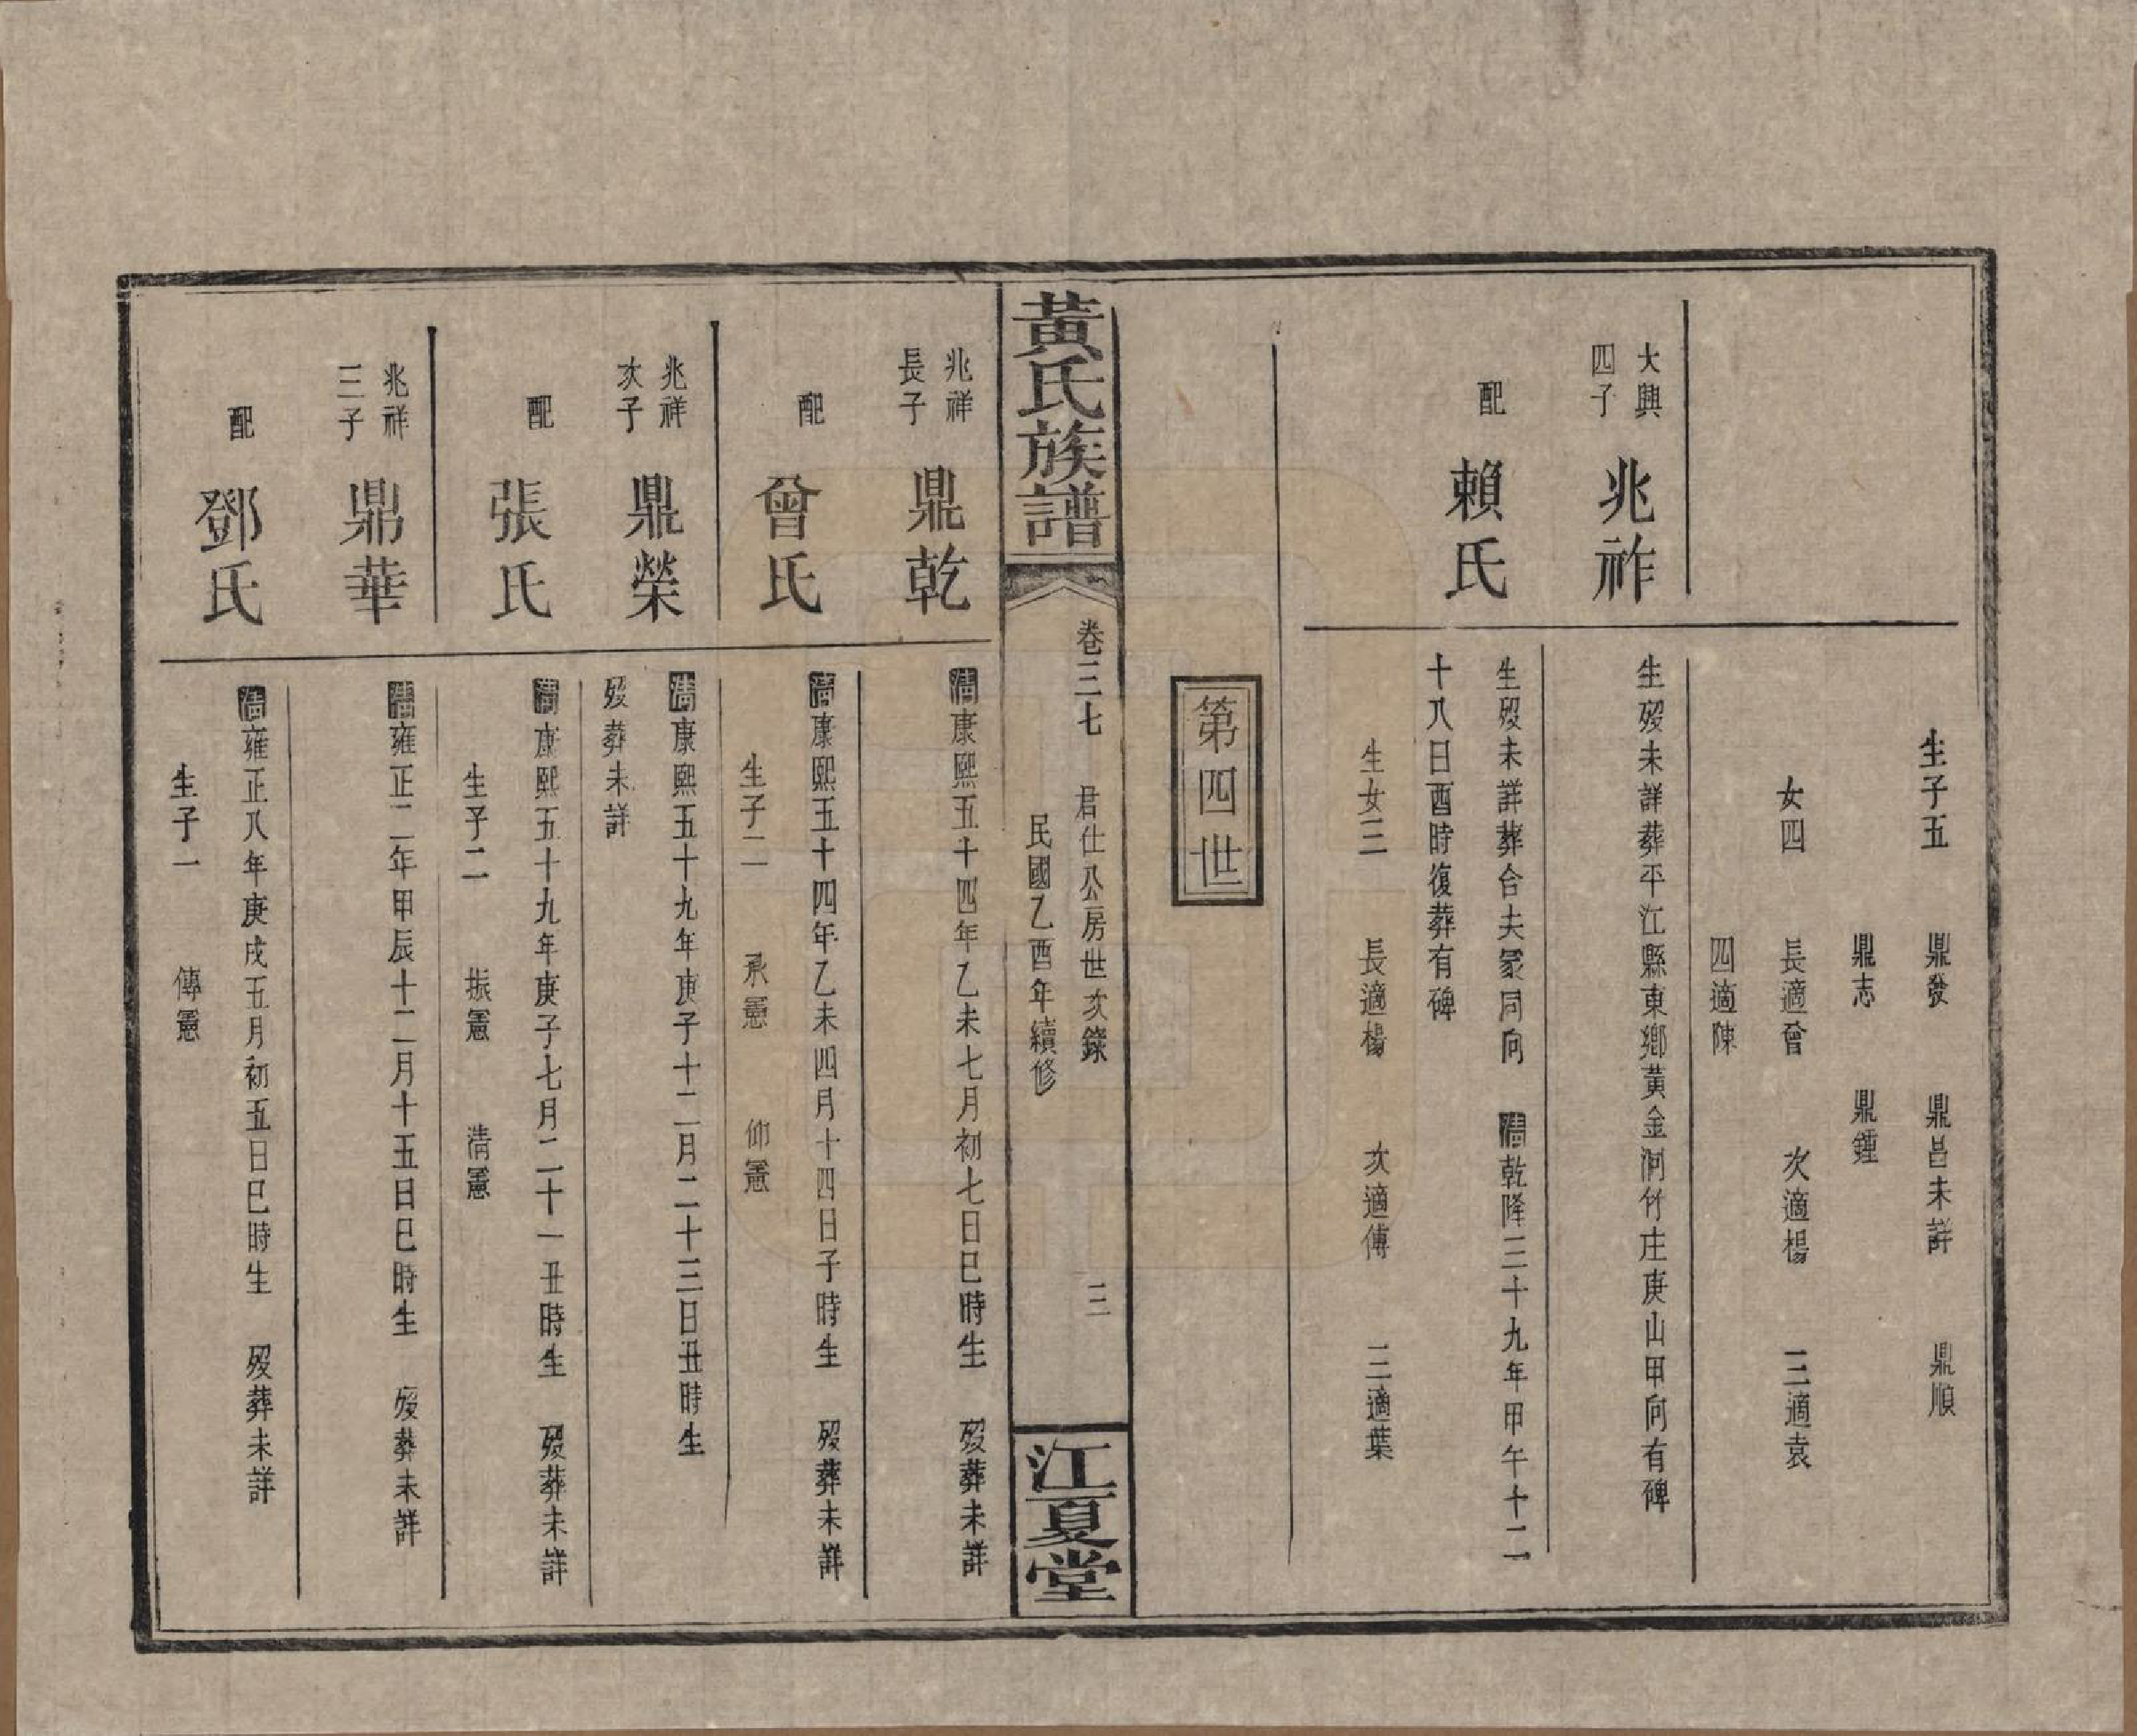 生子五　鼎發　鼎昌未詳　鼎順
鼎志　鼎鍾
女四　長適曾　次適楊　三適袁
四適陳
大興
四子
兆祚
生歿未詳葬平江縣東鄉黃金洞竹庄庚山甲向有碑
配
賴氏
生歿未詳葬合夫冢同向　清乾隆三十九年甲午十二
十八日酉時復葬有碑
生女三　長適楊　次適傅　三適葉
第四世
黃氏族譜
卷三七　君仕公房世次錄
民國乙酉年續修
三
江夏堂
兆祥
長子
鼎乾
清康熙五十四年乙未七月初七日巳時生　歿葬未詳
配
曾氏
清康熙五十四年乙未四月十四日子時生　歿葬未詳
生子二　承憲　仰憲
兆祥
次子
鼎榮
清康熙五十九年庚子十二月二十三日丑時生
歿葬未詳
配
張氏
清康熙五十九年庚子七月二十一丑時生　歿葬未詳
生子二　振憲　清憲
兆祥
三子
鼎華
清雍正二年甲辰十二月十五日巳時生　歿葬未詳
配
鄧氏
清雍正八年庚戌五月初五日巳時生　歿葬未詳
生子一　傳憲